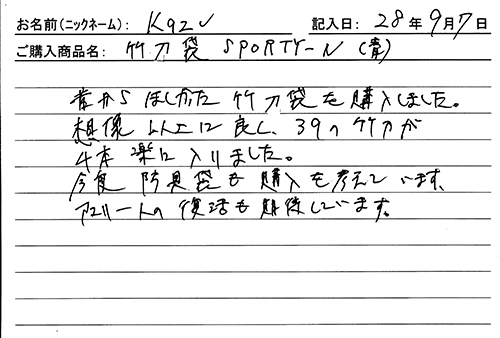 お名前(ニックネーム): Kazu 記入日: 28年9月7日
ご購入商品名: 竹刀袋 SPORTY-N (青)
昔からほしかった竹刀袋を購入しました。
想像以上に良く、39の竹刀が
4本楽に入りました。
今度防具袋も購入を考えています。
アスリートの復活も期待しています。